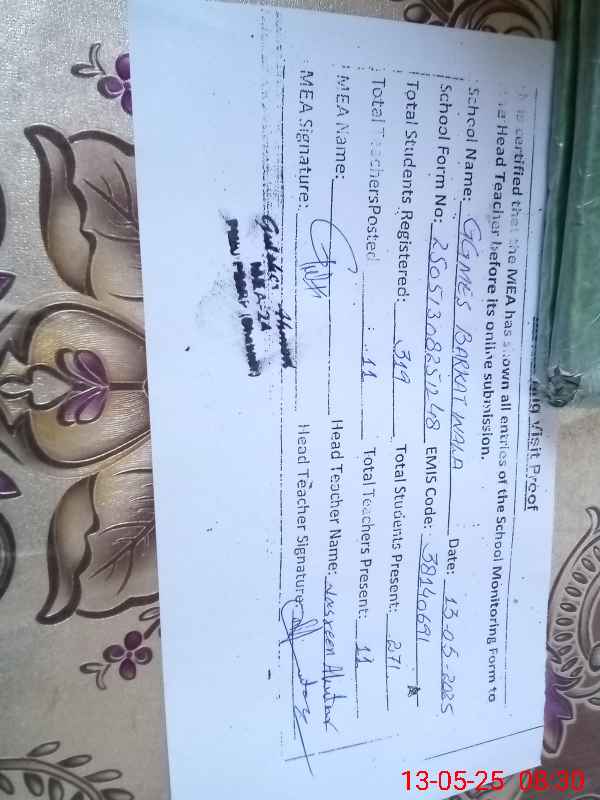 Visit Proof
certified that the MEA has shown all entries of the School Monitoring Form to
Head Teacher before its online submission.
School Name: GGMES BARKIT WALA Date: 13-05-2025
School Form No: EMIS Code: 38140691
Total Students Registered: 319 Total Students Present: 271
Total TeachersPosted : 11 Total Teachers Present: 11
MEA Name: Head Teacher Name: Nasreen Akhtar
MEA Signature: Head Teacher Signature:
MEA-2A
13-05-25 08:30